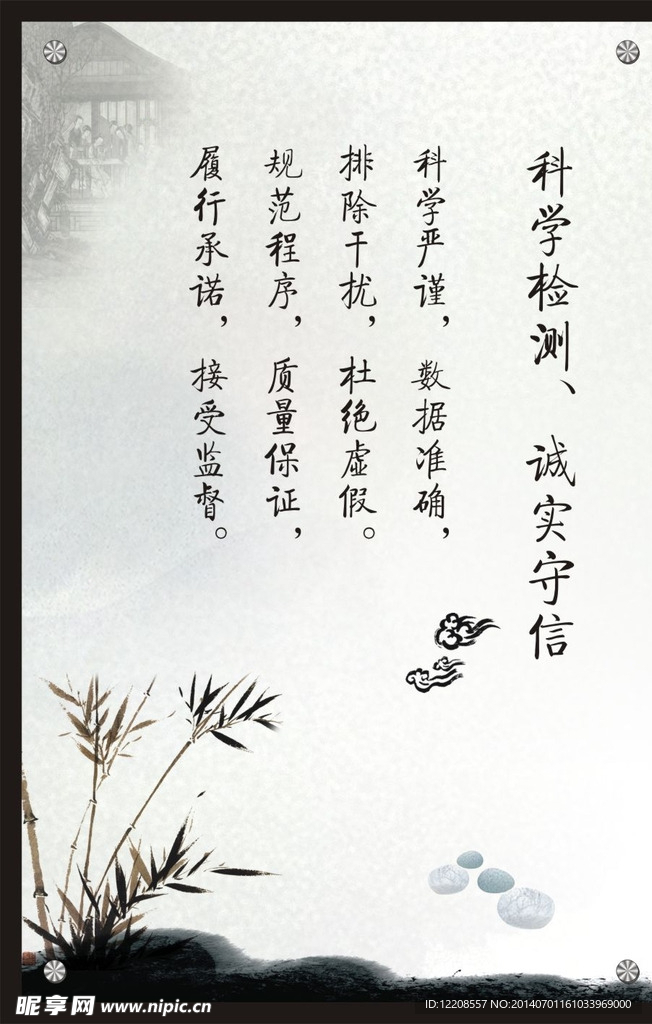 科学检测、诚实守信
科学严谨，数据准确，
排除干扰，杜绝虚假。
规范程序，质量保证，
履行承诺，接受监督。
昵享网 www.nipic.cn
ID:12208557 NO:20140701161033969000